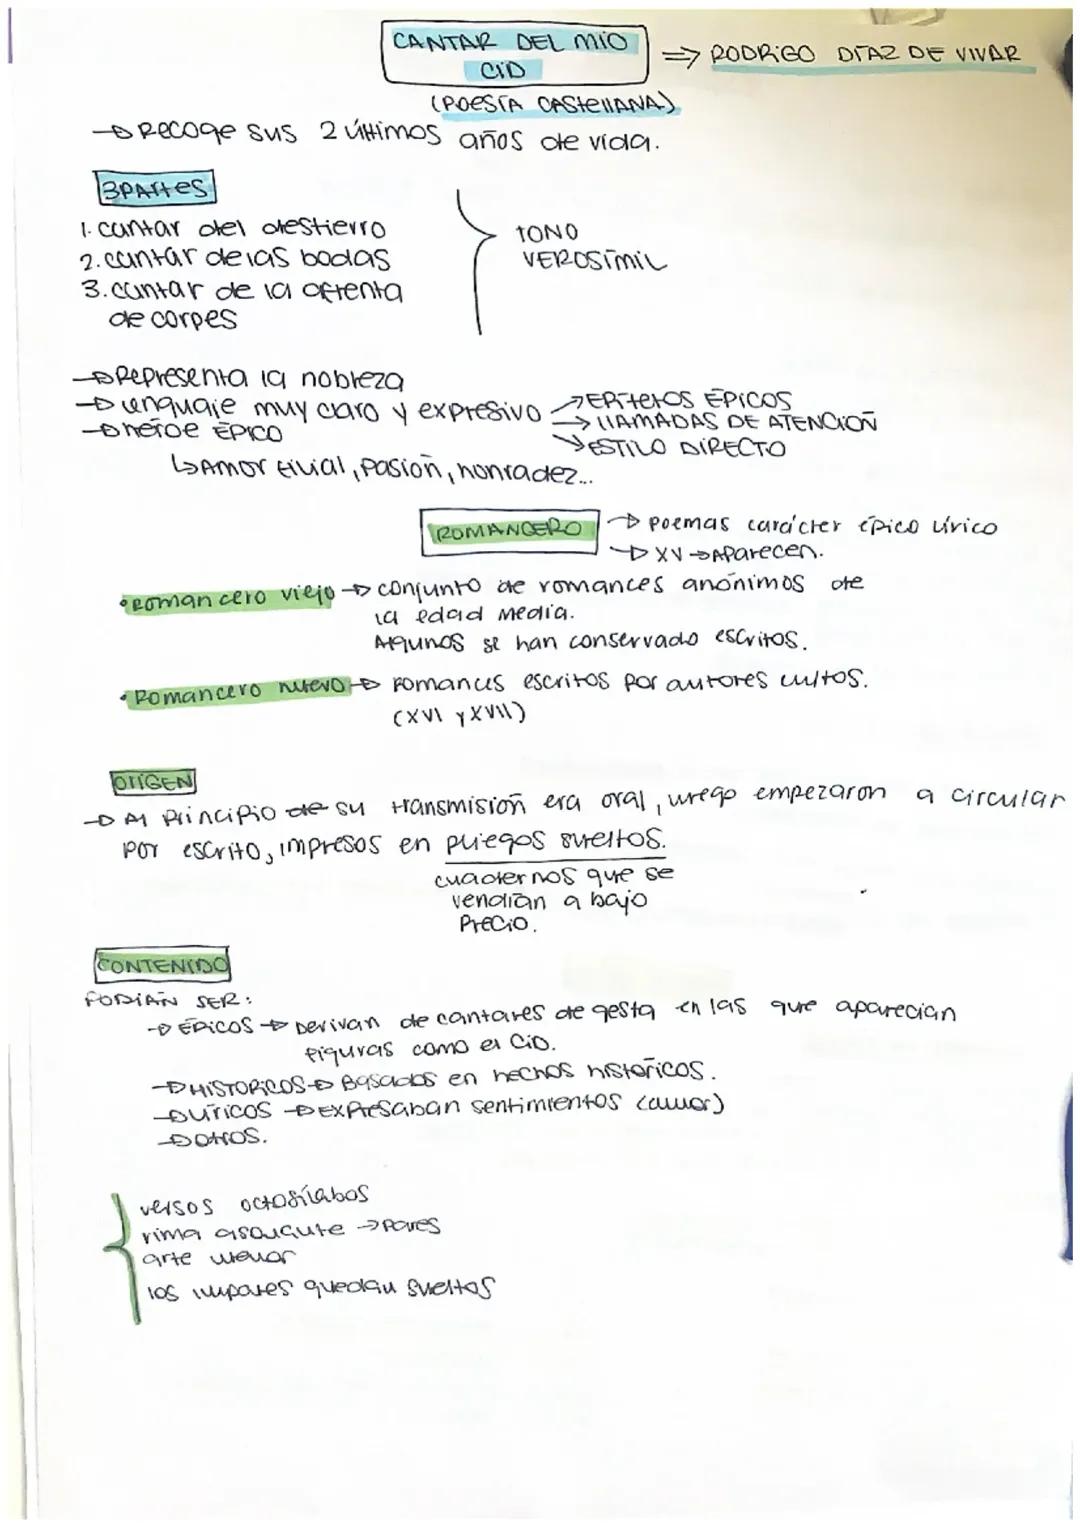 CANTAR DEL MIO CID ⇒ RODRIGO DÍAZ DE VIVAR
(POESÍA CASTELLANA)
→ Recoge sus 2 últimos años de vida.
3 PARTES
1. cantar del destierro
2. cantar de las bodas
3. cantar de la afrenta
de corpes
TONO
VEROSÍMIL
→ Representa la nobleza
→ Lenguaje muy claro y expresivo → EPÍTETOS ÉPICOS
→ LLAMADAS DE ATENCIÓN
→ ESTILO DIRECTO
→ héroe ÉPICO
↳ Amor filial, pasión, honradez...
ROMANCERO → Poemas carácter épico lírico
→ XV → Aparecen.
• Romancero viejo → conjunto de romances anónimos de
la edad Media.
Algunos se han conservado escritos.
• Romancero nuevo → Romances escritos por autores cultos.
(XVI y XVII)
ORIGEN
→ Al principio de su transmisión era oral, luego empezaron a circular
por escrito, impresos en pliegos sueltos.
cuadernos que se
vendían a bajo
Precio.
CONTENIDO
PODÍAN SER:
→ ÉPICOS → Derivan de cantares de gesta en las que aparecían
figuras como el CID.
→ HISTÓRICOS → Basados en hechos históricos.
→ LÍRICOS → Expresaban sentimientos (amor)
→ OTROS.
versos octosílabos
rima asonante → Pares
arte menor
los impares quedan sueltos